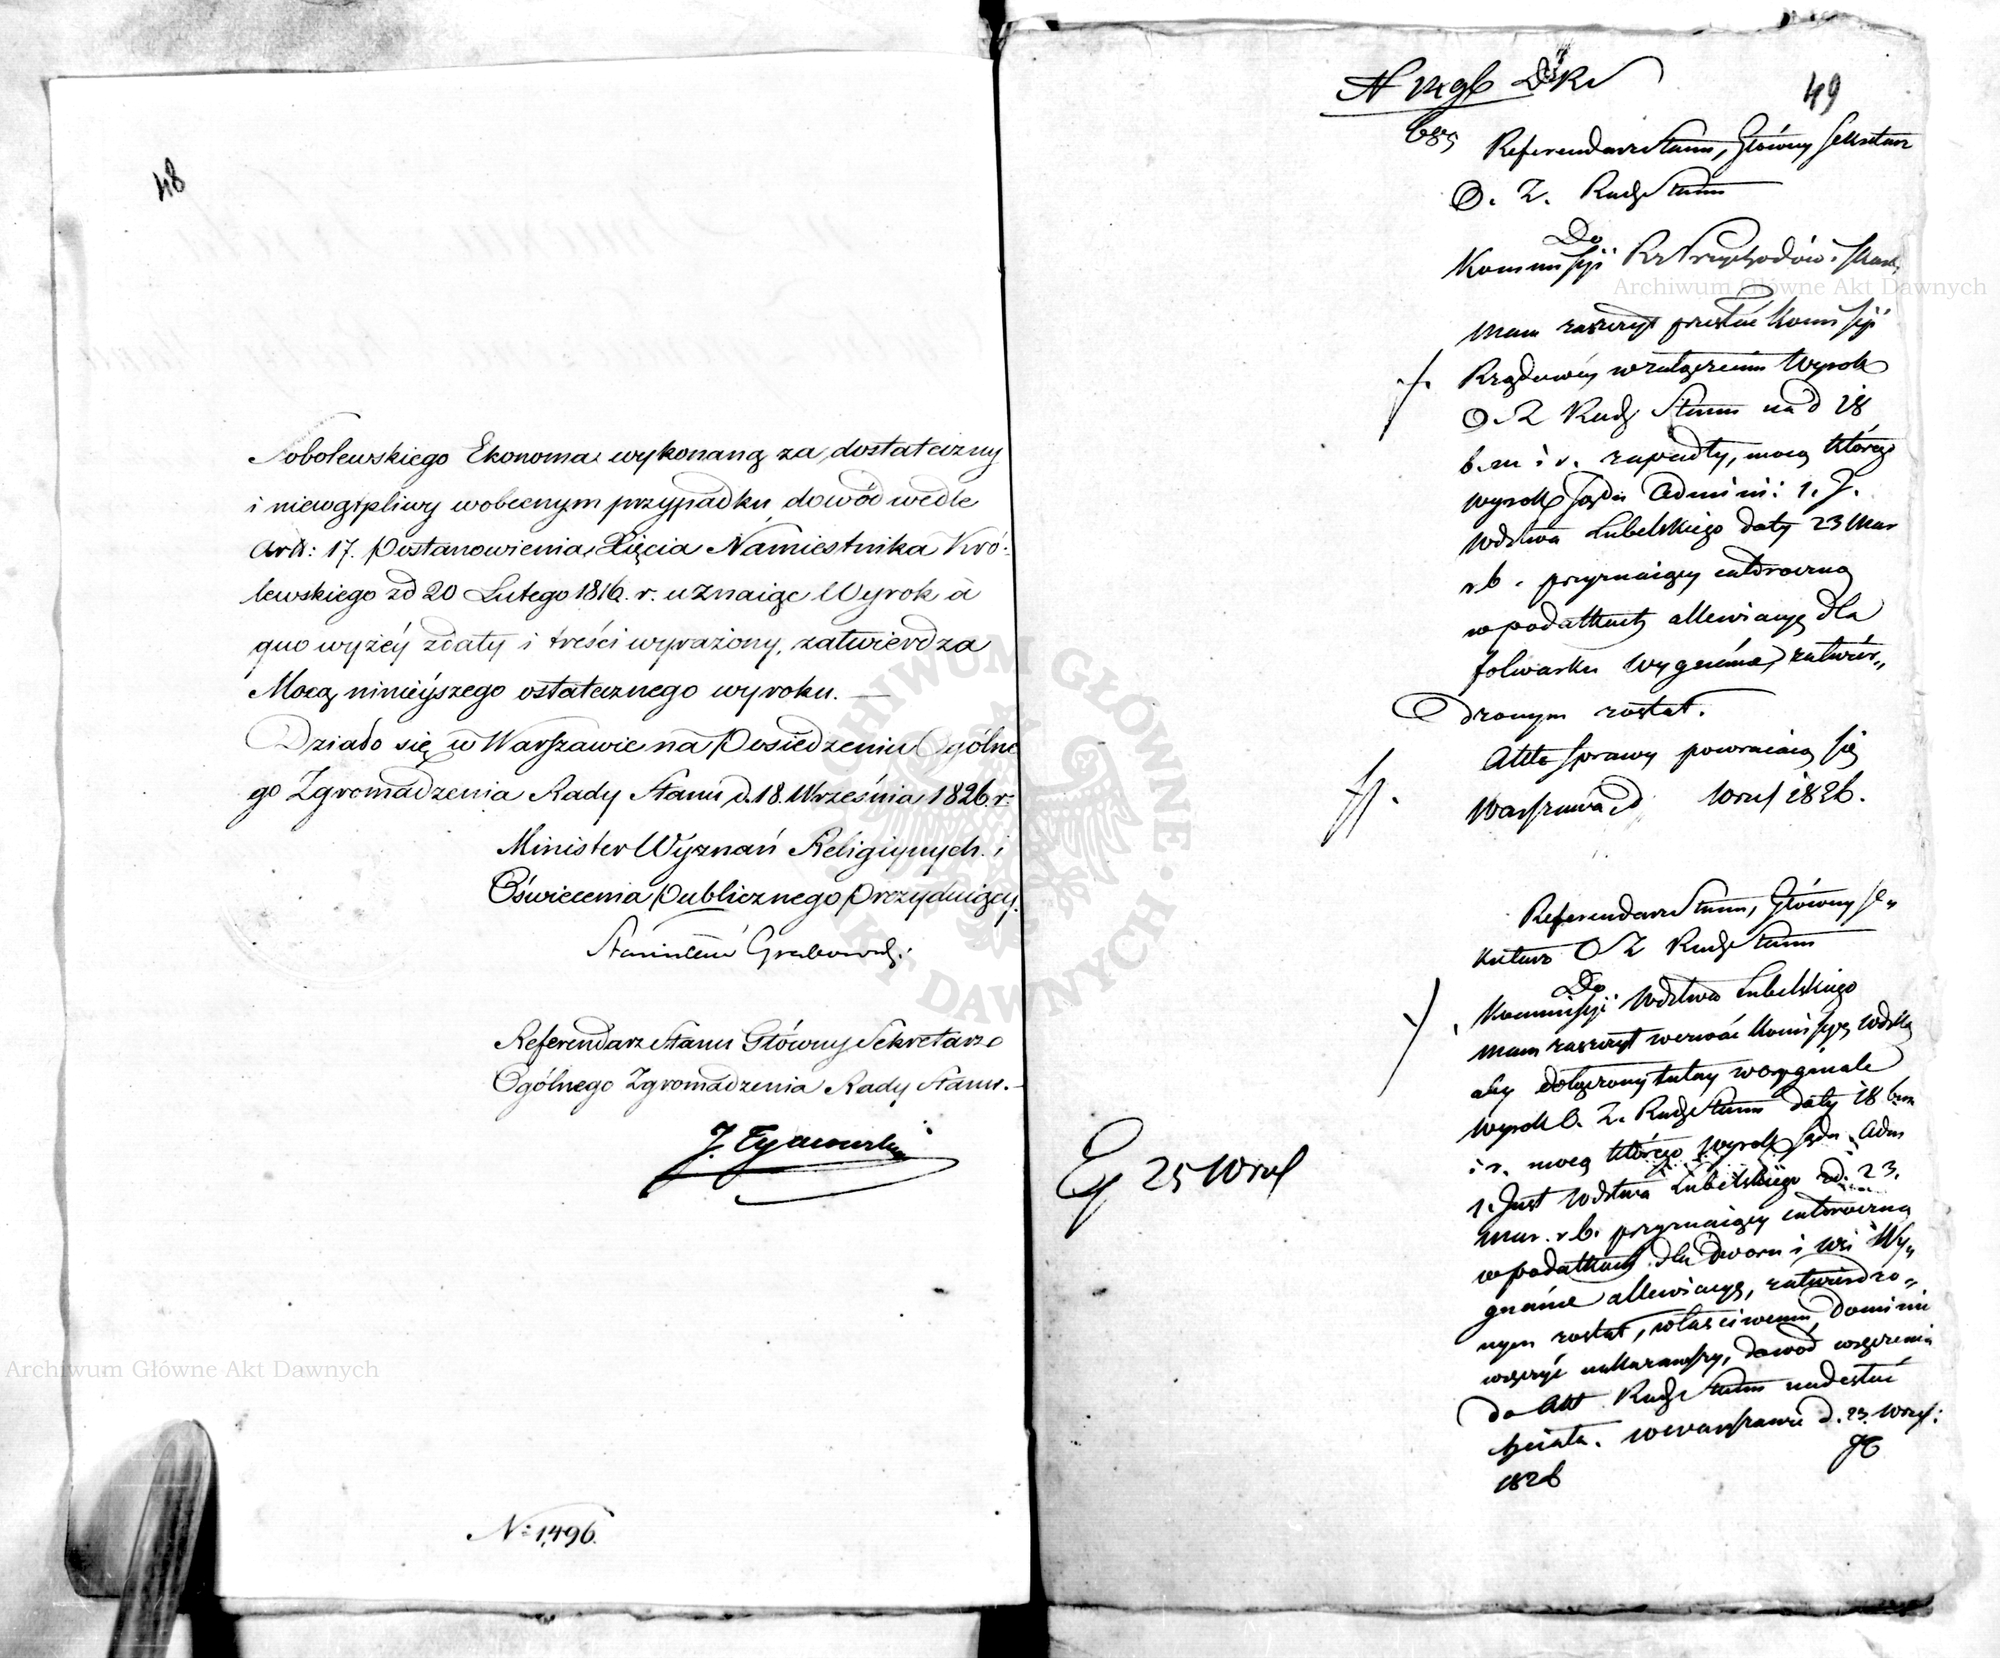 48
Sobolewskiego Ekonoma wykonaną za dostateczny
i niewątpliwy wobecnym przypadku dowód wedle
Artt: 17. Postanowienia Xięcia Namiestnika Kró-
lewskiego zd 20 Lutego 1816. r. uznaiąc Wyrok a
quo wyżéy zdaty i treści wyrażony, zatwierdza
Mocą ninieyszego ostatecznego wyroku. —
Działo się w Warszawie na Posiedzeniu Ogólne
go Zgromadzenia Rady Stanu d. 18. Września 1826. r.
Minister Wyznań Religiynych i
Oświecenia Publicznego Prezyduiący.
Stanisław Grabowski.
Referendarz Stanu Główny Sekretarz
Ogólnego Zgromadzenia Rady Stanu.
J.
N: 1,496.
49
Referendarz Stanu, Główny Sekretarz
O. Z. Rady Stanu
Do
Kommissyi Rz Przychodów i Skar.
Mam zaszczyt przesłać Kommissyi
Rządowéy w załączeniu Wyrok
O. Z Rady Stanu na d 18
b. m i r. zapadły, mocą którego
wyrok Sądu Admini: 1. J.
Wdztwa Lubelskiego daty 23 Mar
r b. przyznaiący całoroczną
w podatkach allewiacyą dla
folwarku Wygnanie, zatwier„
dzonym został.
Akta sprawy powracaią się
Warszawa d Wrześ 1826.
Referendarz Stanu, Główny Se„
kretarz O Z Rady Stanu
Do
Kommissyi Wdztwa Lubelskiego
Mam zaszczyt wezwać Kommissyą Wdzką
aby dołączony tutay w oryginale
Wyrok O. Z. Rady Stanu daty 18 b. m
i r. mocą którego wyrok Sądu Adm
1. Just Wdztwa Lubelskiego zd. 23.
Mar. r b. przyznaiący całoroczną
w podatkach dla Dworu i wsi Wy„
gnanie allewiacyą, zatwierdzo„
nym został, właściwemu Dominium
wręczyć nakazawszy, dowód wręczenia
do Akt Rady Stanu nadesłać
chciała. w Warszawie d. 23. Wrześ:
1826
25 Wrześ
Archiwum Główne Akt Dawnych
Archiwum Główne Akt Dawnych
ARCHIWUM GŁÓWNE · AKT DAWNYCH ·